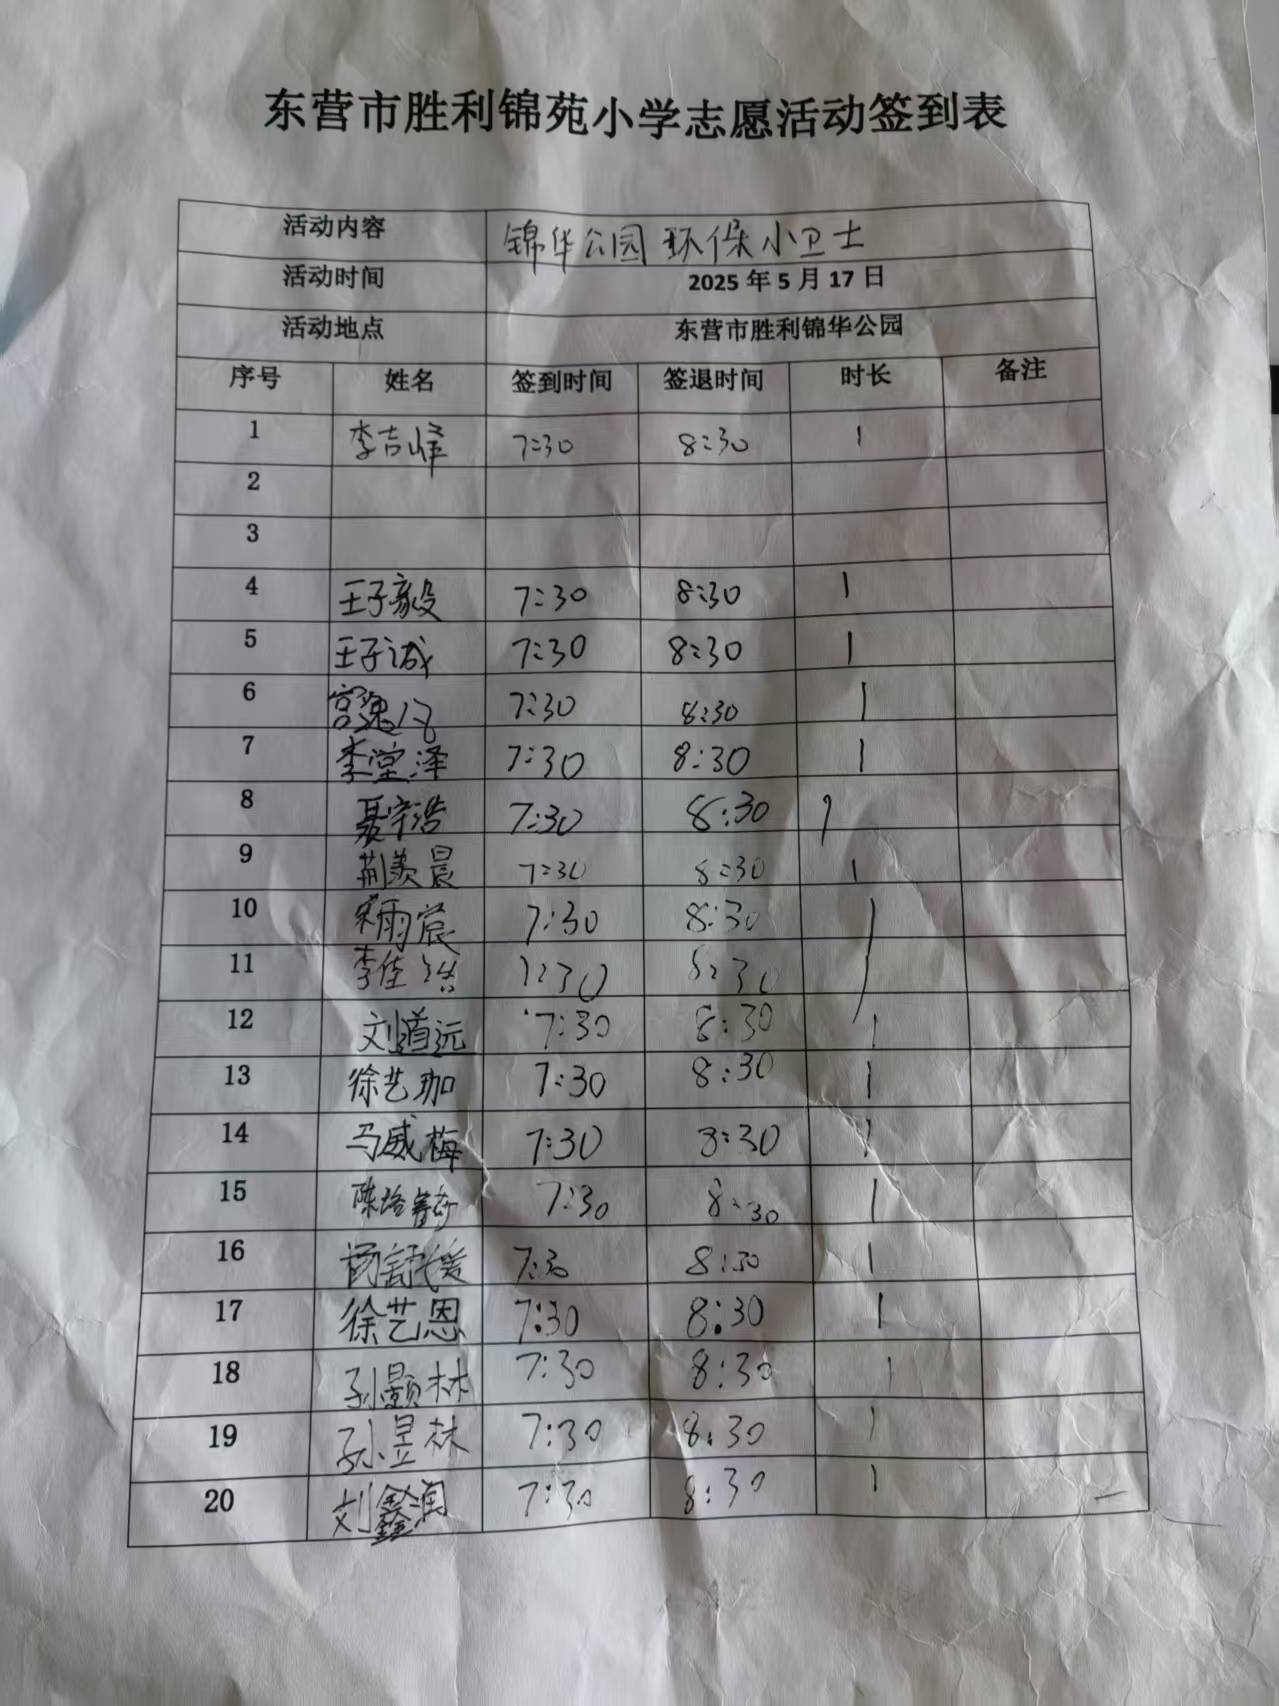 东营市胜利锦苑小学志愿活动签到表
活动内容 锦华公园 环保小卫士
活动时间 2025年5月17日
活动地点 东营市胜利锦华公园
序号 姓名 签到时间 签退时间 时长 备注
1 李吉峰 7:30 8:30 1
2
3
4 王子毅 7:30 8:30 1
5 王子诚 7:30 8:30 1
6 7:30 8:30 1
7 李堂泽 7:30 8:30 1
8 聂宇浩 7:30 8:30 1
9 荆羡晨 7:30 8:30 1
10 宋雨宸 7:30 8:30 1
11 李佳 7:30 8:30
12 刘道远 7:30 8:30 1
13 徐艺珈 7:30 8:30 1
14 马威梅 7:30 8:30 1
15 陈 7:30 8:30 1
16 杨舒 7:30 8:30 1
17 徐艺恩 7:30 8:30 1
18 孙颢林 7:30 8:30 1
19 孙昱林 7:30 8:30 1
20 刘鑫润 7:30 8:30 1